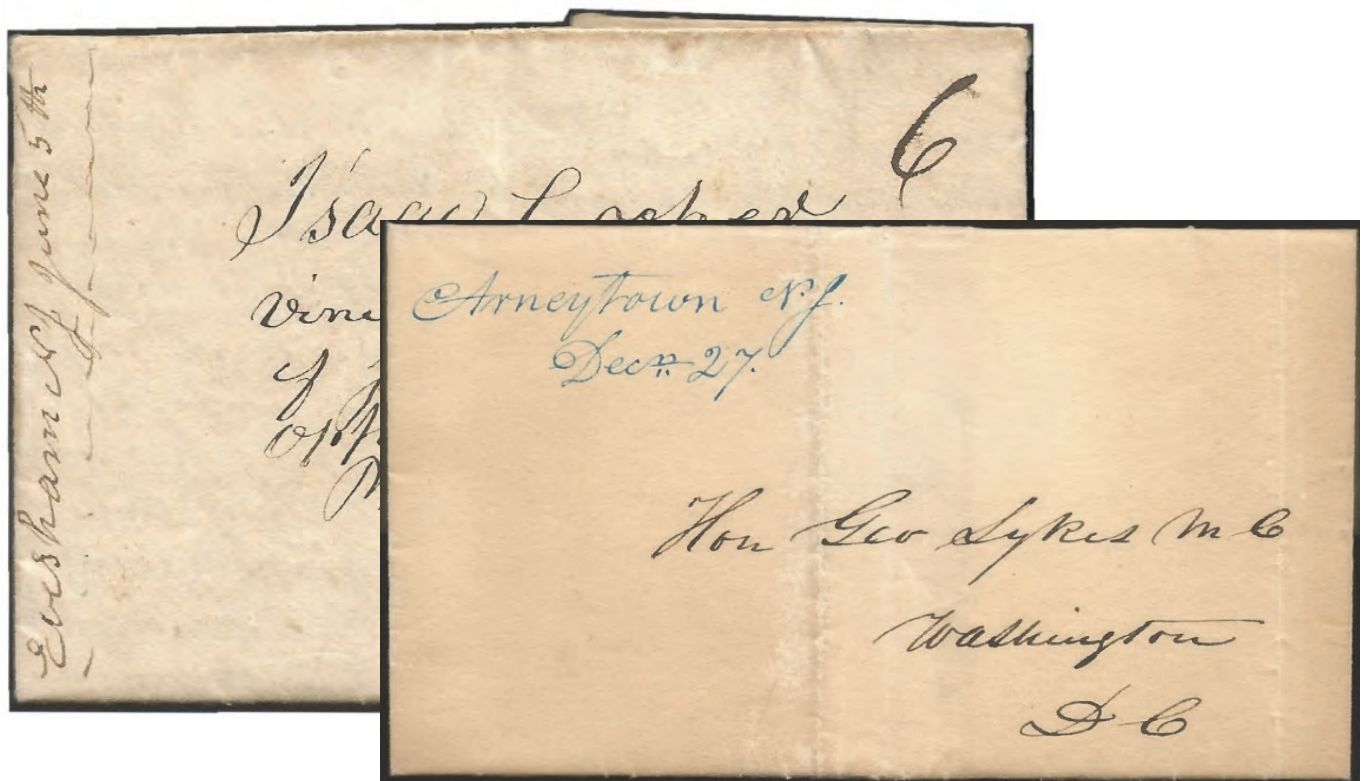 Evesham NJ June 5th
6
Isaac
Arneytown N.J.
Decr. 27.
Hon Geo Sykes M C
Washington
D C